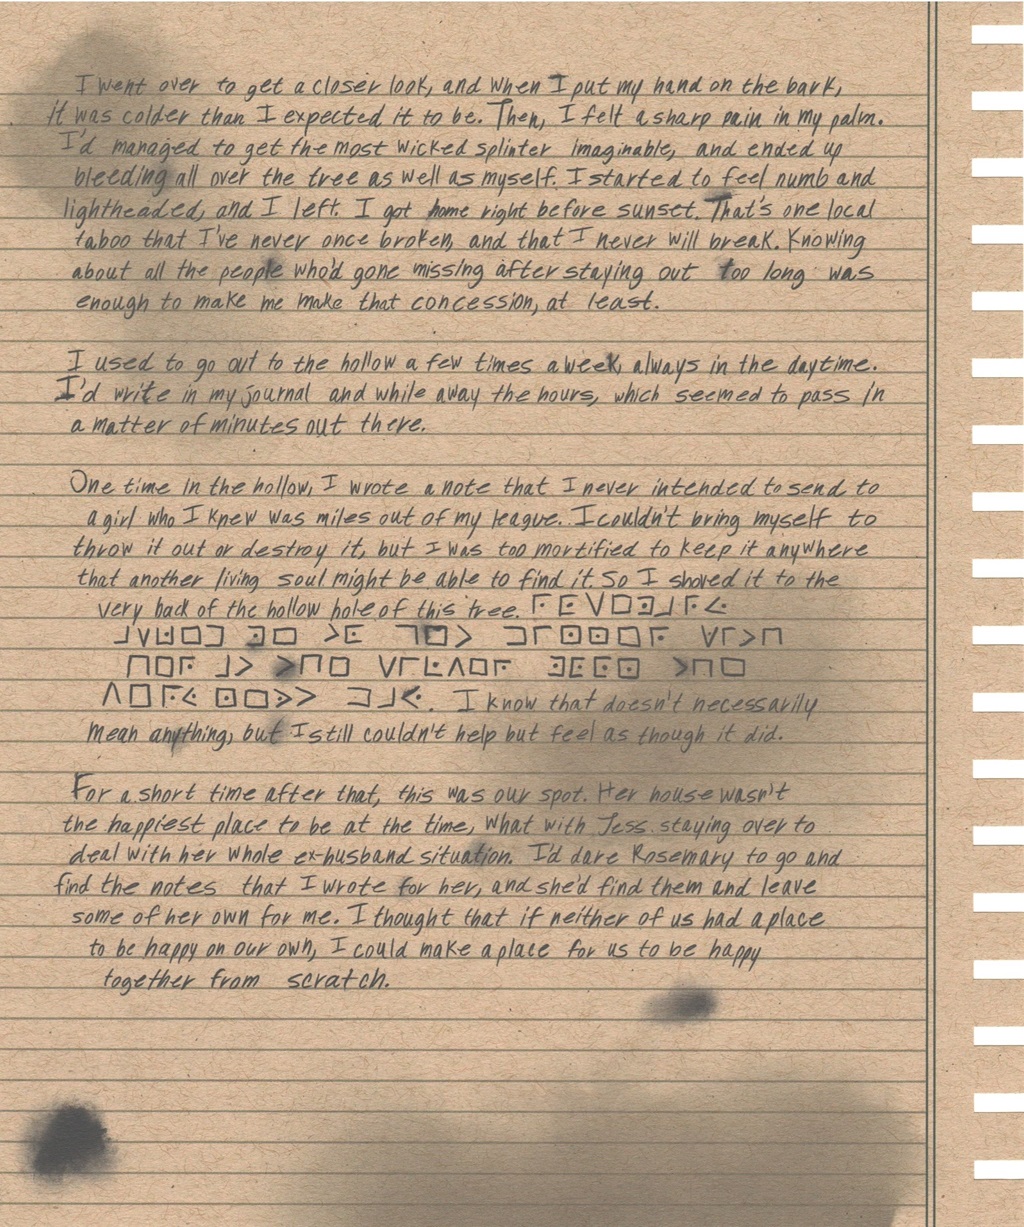 I went over to get a closer look, and when I put my hand on the bark,
it was colder than I expected it to be. Then, I felt a sharp pain in my palm.
I'd managed to get the most wicked splinter imaginable, and ended up
bleeding all over the tree as well as myself. I started to feel numb and
lightheaded, and I left. I got home right before sunset. That's one local
taboo that I've never once broken, and that I never will break. Knowing
about all the people who'd gone missing after staying out too long was
enough to make me make that concession, at least.
I used to go out to the hollow a few times a week, always in the daytime.
I'd write in my journal and while away the hours, which seemed to pass in
a matter of minutes out there.
One time in the hollow, I wrote a note that I never intended to send to
a girl who I knew was miles out of my league. I couldn't bring myself to
throw it out or destroy it, but I was too mortified to keep it anywhere
that another living soul might be able to find it. So I shoved it to the
very back of the hollow hole of this tree.
I know that doesn't necessarily
mean anything, but I still couldn't help but feel as though it did.
For a short time after that, this was our spot. Her house wasn't
the happiest place to be at the time, what with Jess staying over to
deal with her whole ex-husband situation. I'd dare Rosemary to go and
find the notes that I wrote for her, and she'd find them and leave
some of her own for me. I thought that if neither of us had a place
to be happy on our own, I could make a place for us to be happy
together from scratch.